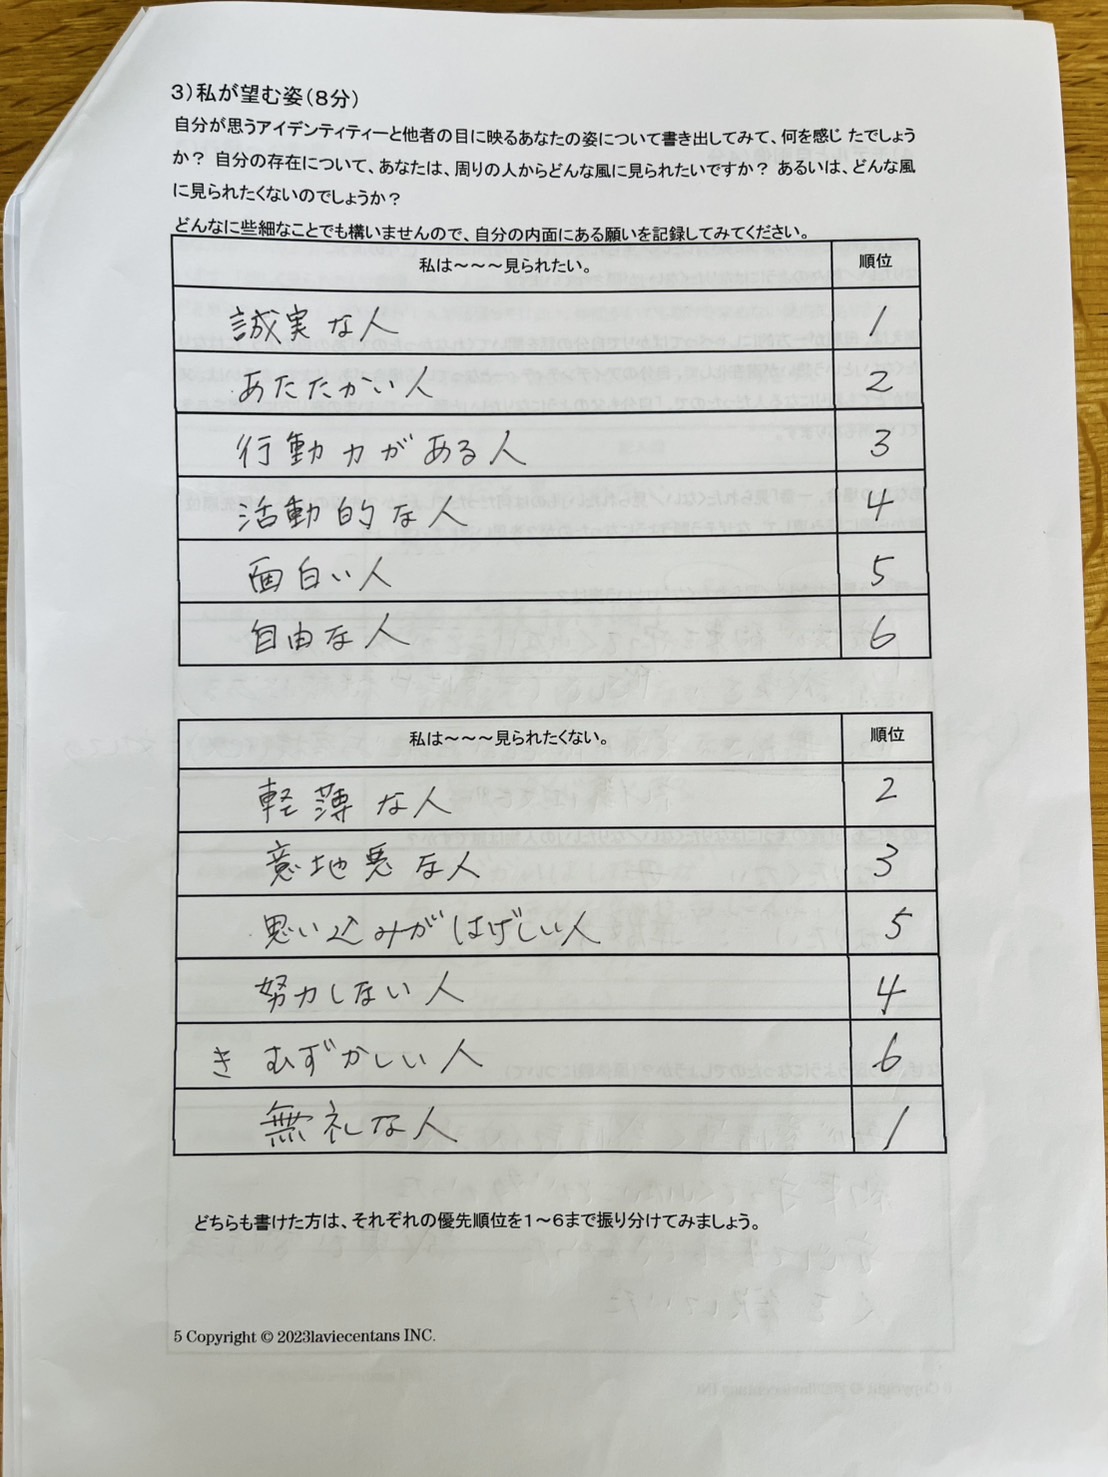 3）私が望む姿（8分）
自分が思うアイデンティティーと他者の目に映るあなたの姿について書き出してみて、何を感じ たでしょう
か？ 自分の存在について、あなたは、周りの人からどんな風に見られたいですか？ あるいは、どんな風
に見られたくないのでしょうか？
どんなに些細なことでも構いませんので、自分の内面にある願いを記録してみてください。
私は～～～見られたい。 順位
誠実な人 1
あたたかい人 2
行動力がある人 3
活動的な人 4
面白い人 5
自由な人 6
私は～～～見られたくない。 順位
軽薄な人 2
意地悪な人 3
思い込みがはげしい人 5
努力しない人 4
きむずかしい人 6
無礼な人 1
どちらも書けた方は、それぞれの優先順位を1～6まで振り分けてみましょう。
5 Copyright © 2023laviecentans INC.